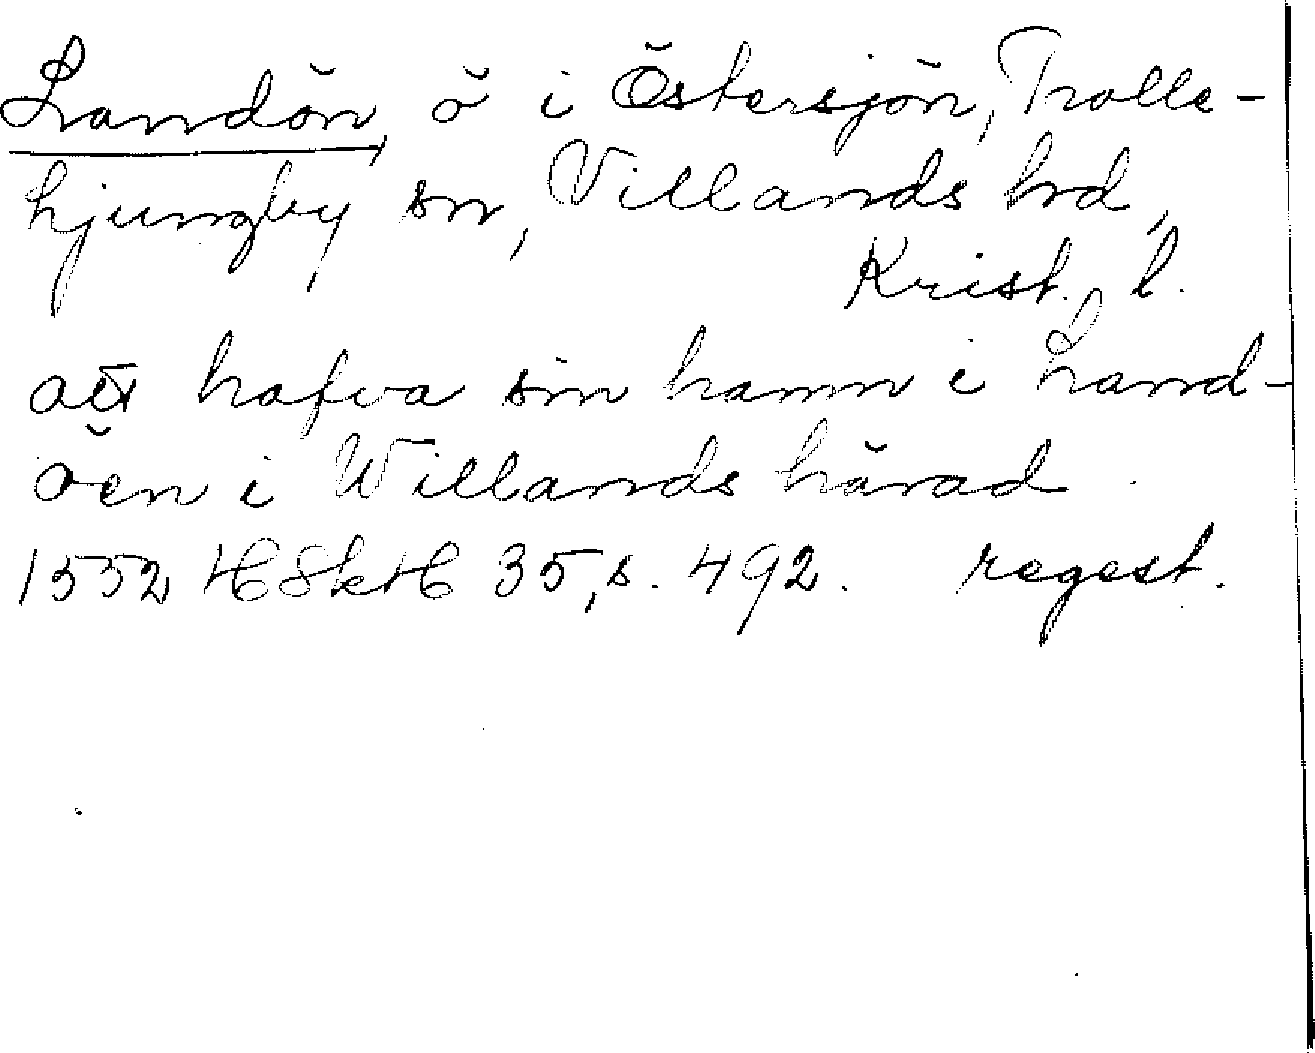 Landön, ö i Östersjön, Trolle-
hjungby sn, Villands hd,
Krist. l.
att hafva sin hamn i Land-
öen i Willands härad
1552 HSkH 35, s. 492. regest.